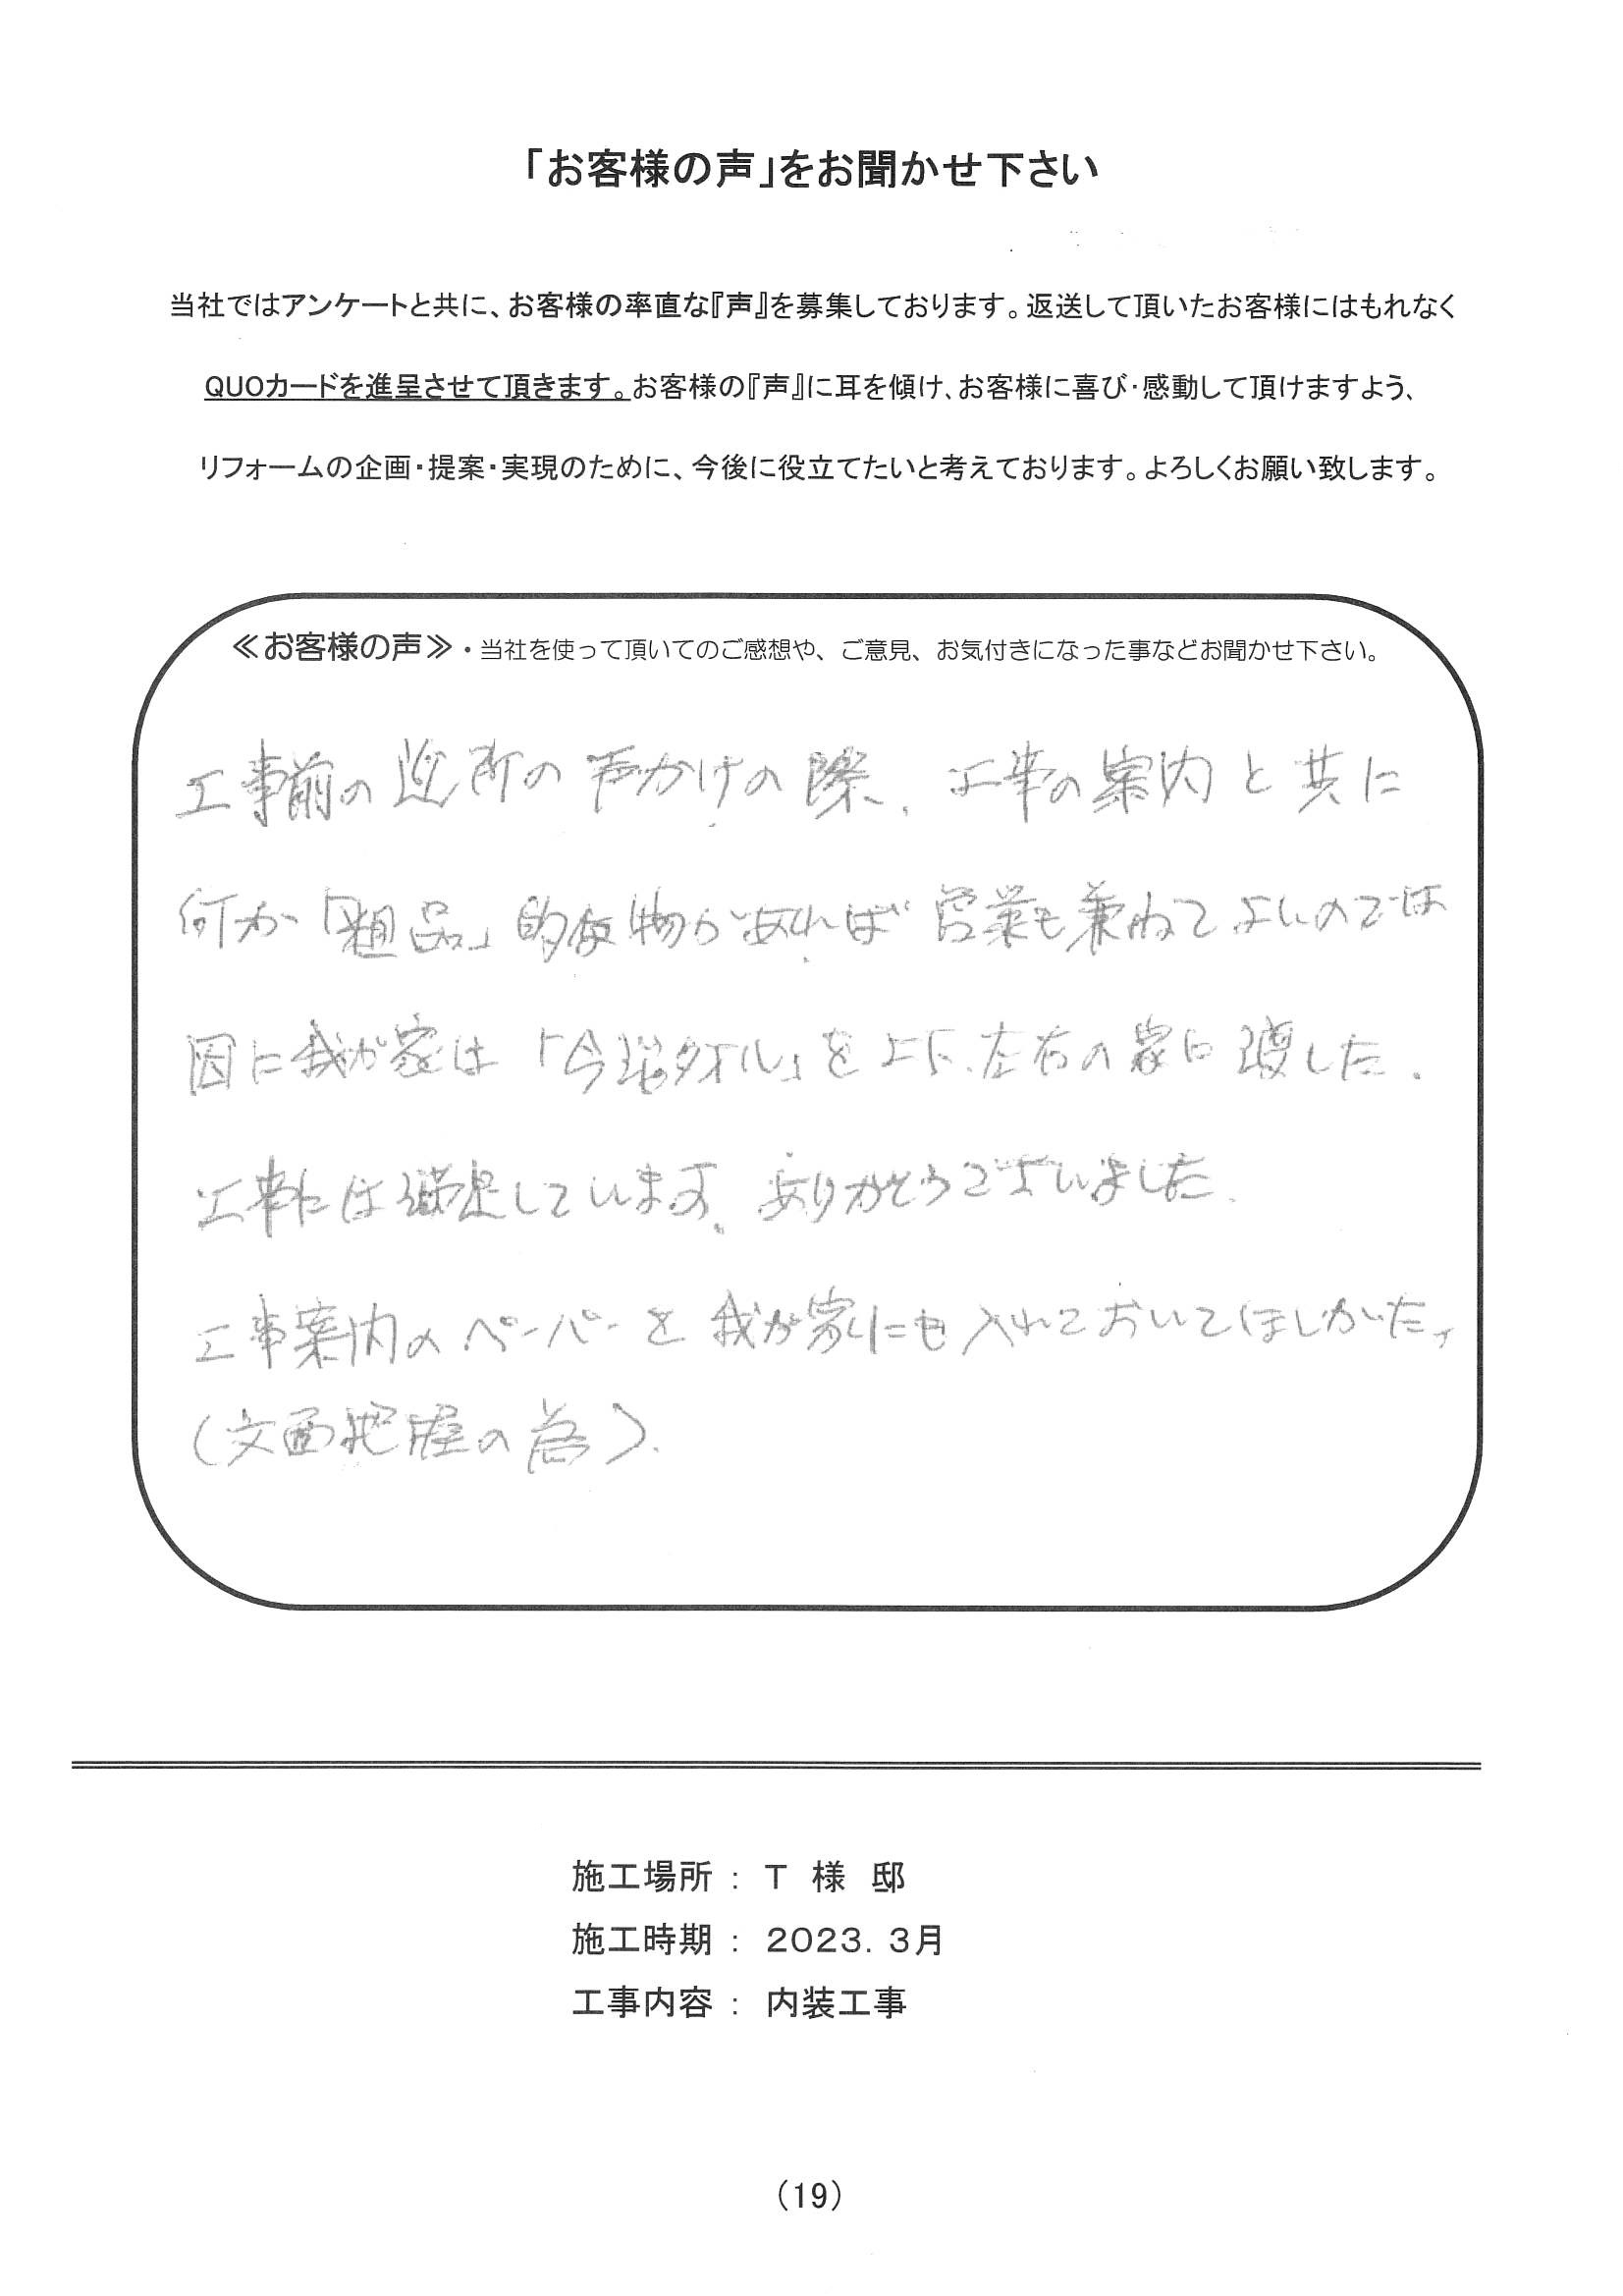 「お客様の声」をお聞かせ下さい
当社ではアンケートと共に、お客様の率直な『声』を募集しております。返送して頂いたお客様にはもれなく
QUOカードを進呈させて頂きます。お客様の『声』に耳を傾け、お客様に喜び・感動して頂けますよう、
リフォームの企画・提案・実現のために、今後に役立てたいと考えております。よろしくお願い致します。
≪お客様の声≫・当社を使って頂いてのご感想や、ご意見、お気付きになった事などお聞かせ下さい。
工事前の近所の声かけの際、工事の案内と共に
何か「粗品」的な物があれば営業も兼ねてよいのでは
因に我が家は「今治タオル」を上下、左右の家に渡した。
工事には満足しています。ありがとうございました。
工事案内のペーパーを我が家にも入れておいてほしかった。
(文面把握の為)。
施工場所 : T 様 邸
施工時期 : 2023. 3月
工事内容 : 内装工事
(19)